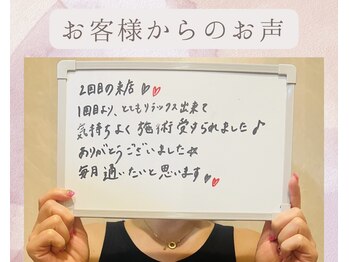 お客様からのお声
2回目の来店♡♥
1回目より、とてもリラックス出来て
気持ちよく施術受けられました♪
ありがとうございました☆
毎月通いたいと思います♥♥